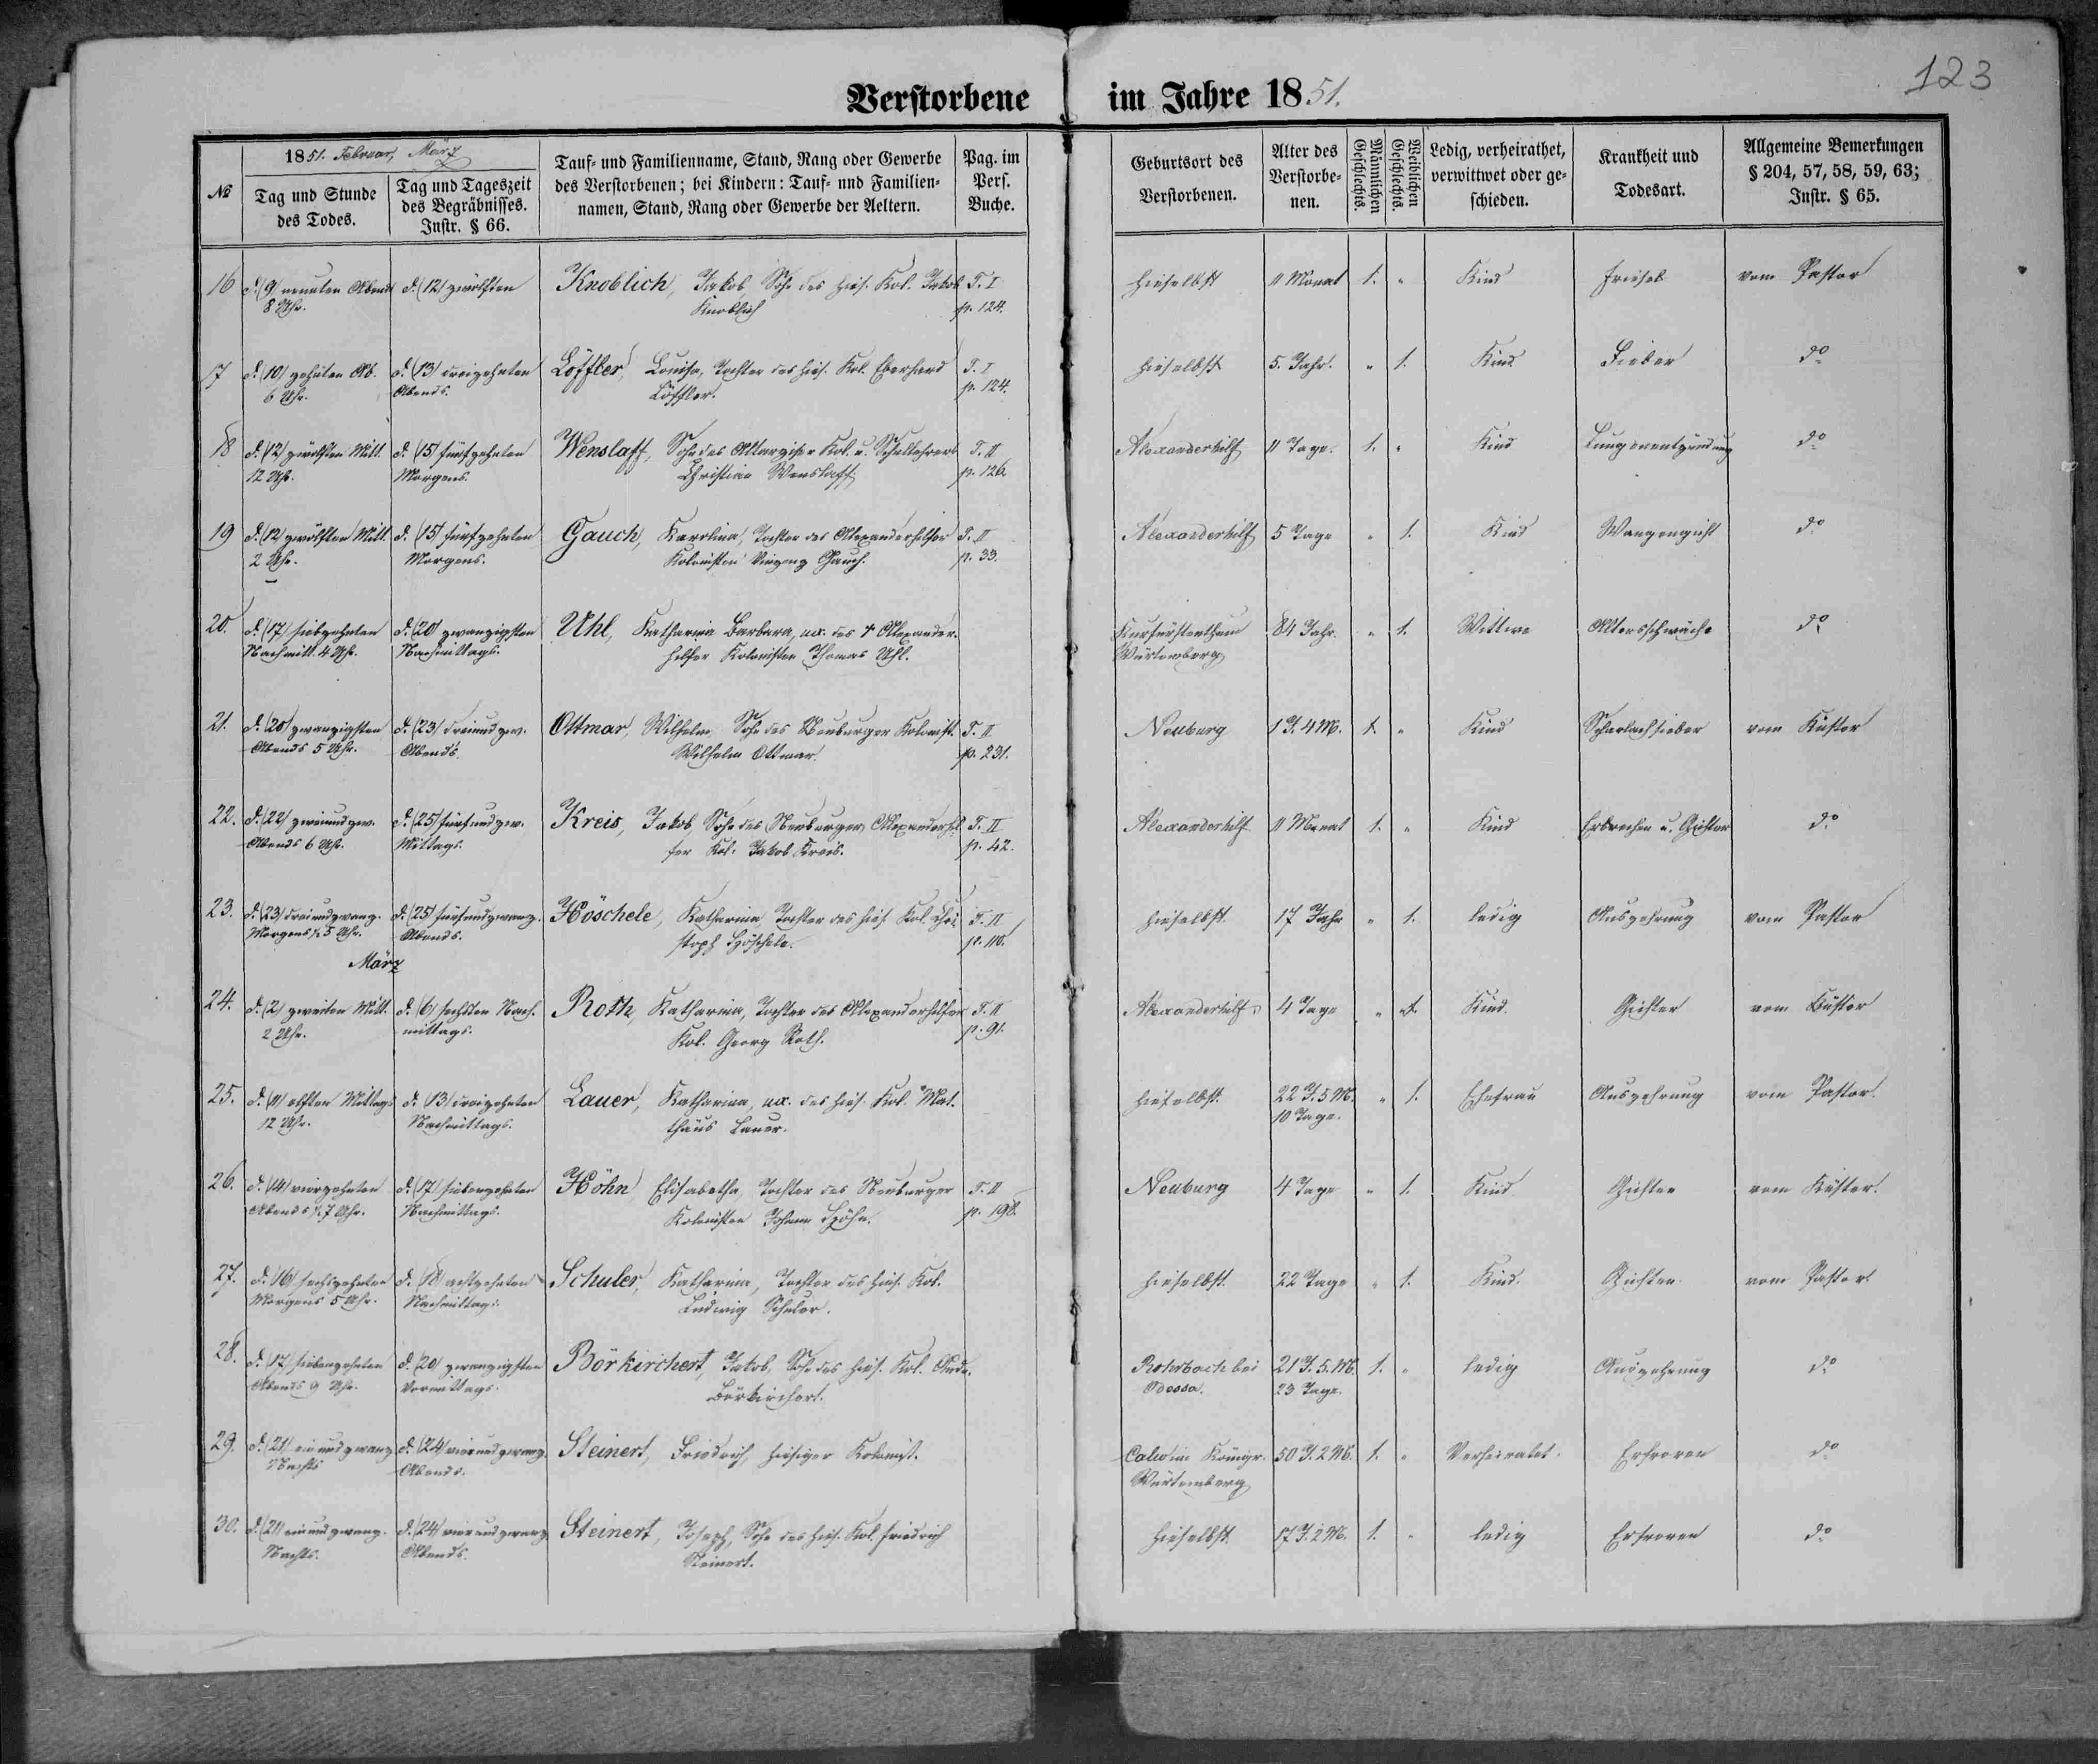 123
Verstorbene im Jahre 1851.
№
1851. Februar, März
Tag und Stunde des Todes.
Tag und Tageszeit des Begräbnisses. Instr. § 66.
Tauf- und Familienname, Stand, Rang oder Gewerbe
des Verstorbenen; bei Kindern: Tauf- und Familien-
namen, Stand, Rang oder Gewerbe der Aeltern.
Pag. im Pers. Buche.
Geburtsort des Verstorbenen.
Alter des Verstorbe-nen.
Männlichen Geschlechts.
Weiblichen Geschlechts.
Ledig, verheirathet, verwittwet oder ge-schieden.
Krankheit und Todesart.
Allgemeine Bemerkungen § 204, 57, 58, 59, 63; Instr. § 65.
16 d. (9) neunten Abend d. (12) zwölften Knoblich, Jakob Sohn des hies. Kol. Jakob T. I hieselbst 11 Monat 1. " Kind Friesel vom Pastor
8 Uhr. Knoblich p. 124.
17 d. (10) zehnten Ab. d. (13) dreizehnten Löffler, Louisa, Tochter des hies. Kol. Eberhard T. I hieselbst 5. Jahr. " 1. Kind Fieber do
6 Uhr. Abends. Löffler. p. 124.
18 d. (12) zwölften Mitt. d. (15) fünfzehnten Wenslaff, Sohn des Kol. u. Schullehrers T. II Alexanderhilf 11 Tage. 1. " Kind Lungenentzündung do
12 Uhr. Morgens. Christian Wenslaff p. 126.
19 d. (12) zwölften Mitt. d. (15) fünfzehnten Gauch, Karolina, Tochter des Alexanderhilfer T. II Alexanderhilf 5 Tage " 1. Kind do
2 Uhr. Morgens. Kolonisten Gauch. p. 33.
20. d. (17) siebzehnten d. (20) zwanzigsten Uhl, Katharina Barbara, ux. des † Alexander- Kurfürstenthum 84 Jahr. " 1. Wittwe Altersschwäche do
Nachmitt. 4 Uhr. Nachmittags. hilfer Kolonisten Thomas Uhl. Würtemberg
21. d. (20) zwanzigsten d. (23) dreiundzw. Ottmar, Wilhelm, Sohn des Neuburger Kolonist. T. II Neuburg 1 J. 4 M. 1. " Kind Scharlachfieber vom Küster
Abends 5 Uhr. Abends. Wilhelm Ottmar. p. 231.
22. d. (22) zweiundzw. d. (25) fünfundzw. Kreis, Jakob, Sohn des Neuburger Alexanderhil- T. II Alexanderhilf 11 Monat 1. " Kind Erbrechen u. Gichter do
Abends 6 Uhr. Mittags. fer Kol. Jakob Kreis. p. 42.
23. d. (23) dreiundzwanz. d. (25) fünfundzwanz. Höschele, Katharina Tochter des hies. Kol. Chri- T. II hieselbst. 17 Jahr " 1. ledig Auszehrung vom Pastor
Morgens ½ 5 Uhr. Abends. stoph Höschele. p. 110.
März
24. d. (2) zweiten Mitt. d. (6) sechsten Nach- Roth, Katharina, Tochter des Alexanderhilfer T. II Alexanderhilf 4 Tage " 1. Kind Gichter vom Küster
2 Uhr. mittags. Kol. Georg Roth. p. 91.
25. d. (11) elften Mittags d. (13) dreizehnten Lauer, Katharina, ux. des hies. Kol. Mat- hieselbst. 22 J. 5 M. " 1. Ehefrau Auszehrung vom Pastor.
12 Uhr. Nachmittags. thäus Lauer. 10 Tage.
26. d. (14) vierzehnten d. (17) siebenzehnten Höhn, Elisabetha, Tochter des Neuburger T. II Neuburg 4 Tage " 1. Kind Gichter vom Küster.
Abends ½ 7 Uhr. Nachmittags. Kolonisten Johann Höhn. p. 198.
27. d. (16) sechszehnten d. (18) achtzehnten Schuler, Katharina, Tochter des hies. Kol. hieselbst. 22 Tage " 1. Kind. Gichter vom Pastor
Morgens 5 Uhr. Nachmittag. Ludwig Schuler.
28. d. (17) siebenzehnten d. (20) zwanzigsten Börkirchert, Jakob, Sohn des hies. Kol. Andr. Rohrbach bei 21 J. 5. M. 1. " ledig Auszehrung do
Abends 9 Uhr. Vormittags. Börkirchert. Odessa. 23 Tage.
29. d. (21) ein und zwanz. d. (24) vierundzwanz. Steinert, Friedrich, hiesiger Kolonist. Calw im Königr. 50 J. 2 M. 1. " Verheiratet. Erfroren do
Nachts Abends. Würtemberg
30. d. (21) ein und zwanz. d. (24) vier und zwanz. Steinert, Joseph, Sohn des hies. Kol. Friedrich hieselbst. 17 J. 2 M. 1. " ledig Erfroren do
Nachts. Abends. Steinert.